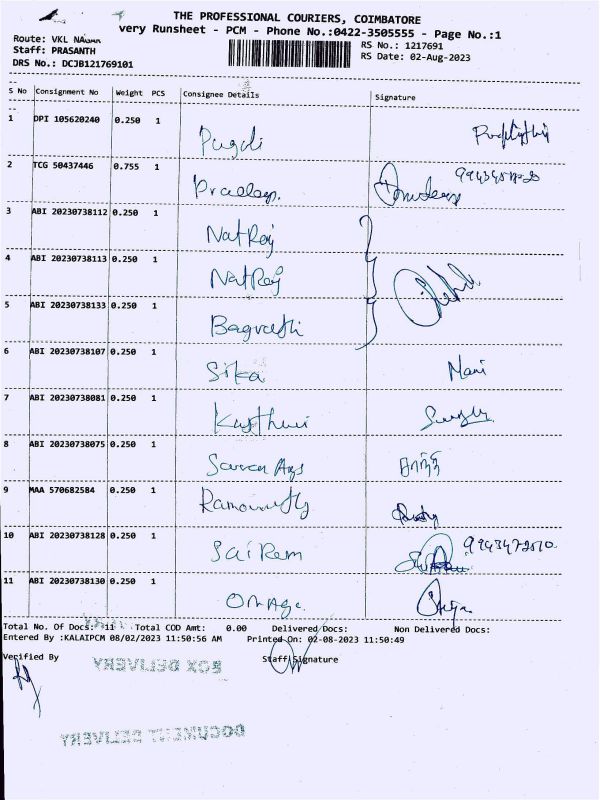 THE PROFESSIONAL COURIERS, COIMBATORE
very Runsheet - PCM - Phone No.:0422-3505555 - Page No.:1
Route: VKL NAGAR
RS No.: 1217691
Staff: PRASANTH
RS Date: 02-Aug-2023
DRS No.: DCJB121769101
S No Consignment No Weight PCS Consignee Details Signature
1 DPI 105620240 0.250 1 Pugali
2 TCG 50437446 0.755 1 Pradeep.
3 ABI 20230738112 0.250 1 NatRaj
4 ABI 20230738113 0.250 1 NatRaj
5 ABI 20230738133 0.250 1
6 ABI 20230738107 0.250 1 Sika Mani
7 ABI 20230738081 0.250 1
8 ABI 20230738075 0.250 1
9 MAA 570682584 0.250 1
10 ABI 20230738128 0.250 1 Sai Ram
11 ABI 20230738130 0.250 1
Total No. Of Docs: 11 Total COD Amt: 0.00 Delivered Docs: Non Delivered Docs:
Entered By :KALAIPCM 08/02/2023 11:50:56 AM Printed On: 02-08-2023 11:50:49
Verified By Staff Signature
BOX DELIVERY
DOCUMENT DELIVERY